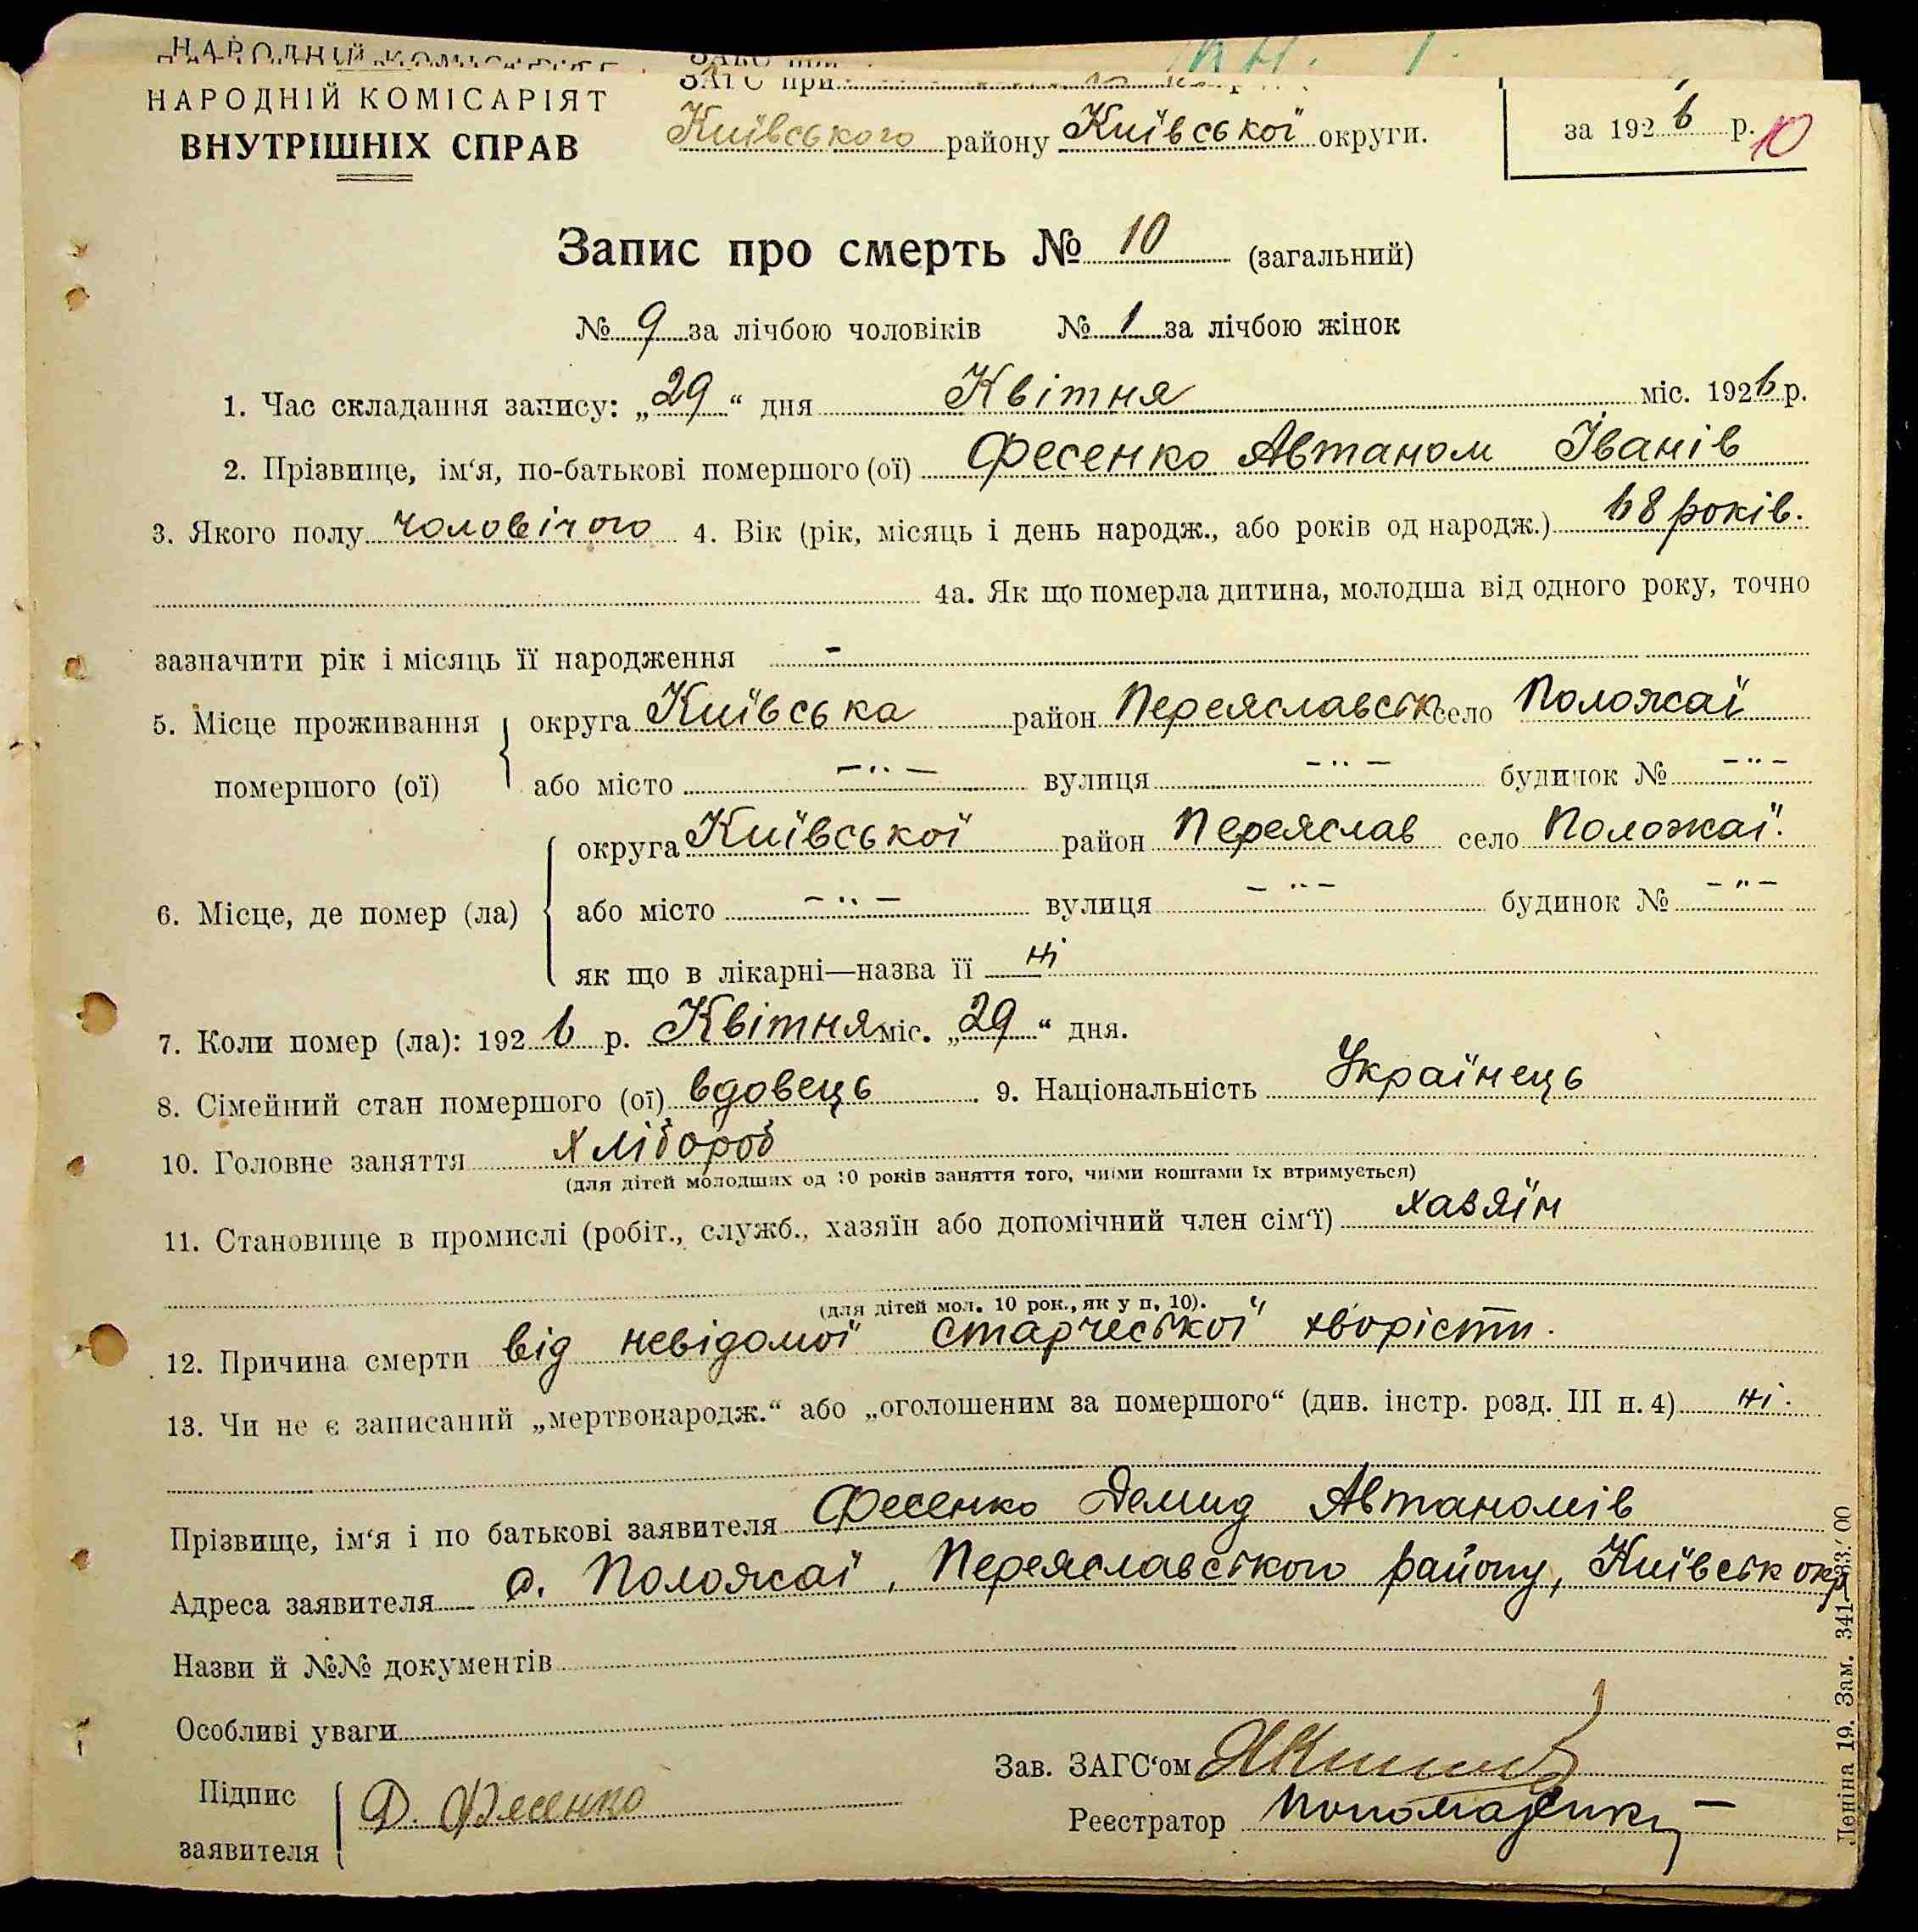 НАРОДНІЙ КОМІСАРІЯТ
ЗАГС при
НАРОДНІЙ КОМІСАРІЯТ
ВНУТРІШНІХ СПРАВ
Київського району Київської округи.
за 1926 р.
10
Запис про смерть № 10 (загальний)
№ 9 за лічбою чоловіків № 1 за лічбою жінок
1. Час складання запису: „29“ дня Квітня міс. 1926 р.
2. Прізвище, ім‘я, по-батькові помершого (ої) Фесенко Автаном Іванів
3. Якого полу чоловічого 4. Вік (рік, місяць і день народж., або років од народж.) 68 років.
4а. Як що померла дитина, молодша від одного року, точно
зазначити рік і місяць її народження -
5. Місце проживання помершого (ої) округа Київська район Переяславськ село Положаї
або місто -"- вулиця -"- будинок № -"-
6. Місце, де помер (ла) округа Київської район Переяслав село Положаї.
або місто -"- вулиця -"- будинок № -"-
як що в лікарні—назва її ні
7. Коли помер (ла): 1926 р. Квітня міс. „29“ дня.
8. Сімейний стан помершого (ої) вдовець. 9. Національність Українець
10. Головне заняття хлібороб
(для дітей молодших од 10 років заняття того, чиїми коштами їх втримується)
11. Становище в промислі (робіт., служб., хазяїн або допомічний член сім‘ї) хазяїн
(для дітей мол. 10 рок., як у п. 10).
12. Причина смерти від невідомої старческої хворісти.
13. Чи не є записаний „мертвонародж.“ або „оголошеним за помершого“ (див. інстр. розд. III п. 4) ні.
Прізвище, ім‘я і по батькові заявителя Фесенко Демид Автаномів
Адреса заявителя с. Положаї, Переяславського району, Київськ окр
Назви й №№ документів
Особливі уваги
Зав. ЗАГС‘ом
Підпис заявителя Д. Фесенко
Реєстратор
Леніна 19. Зам. 341